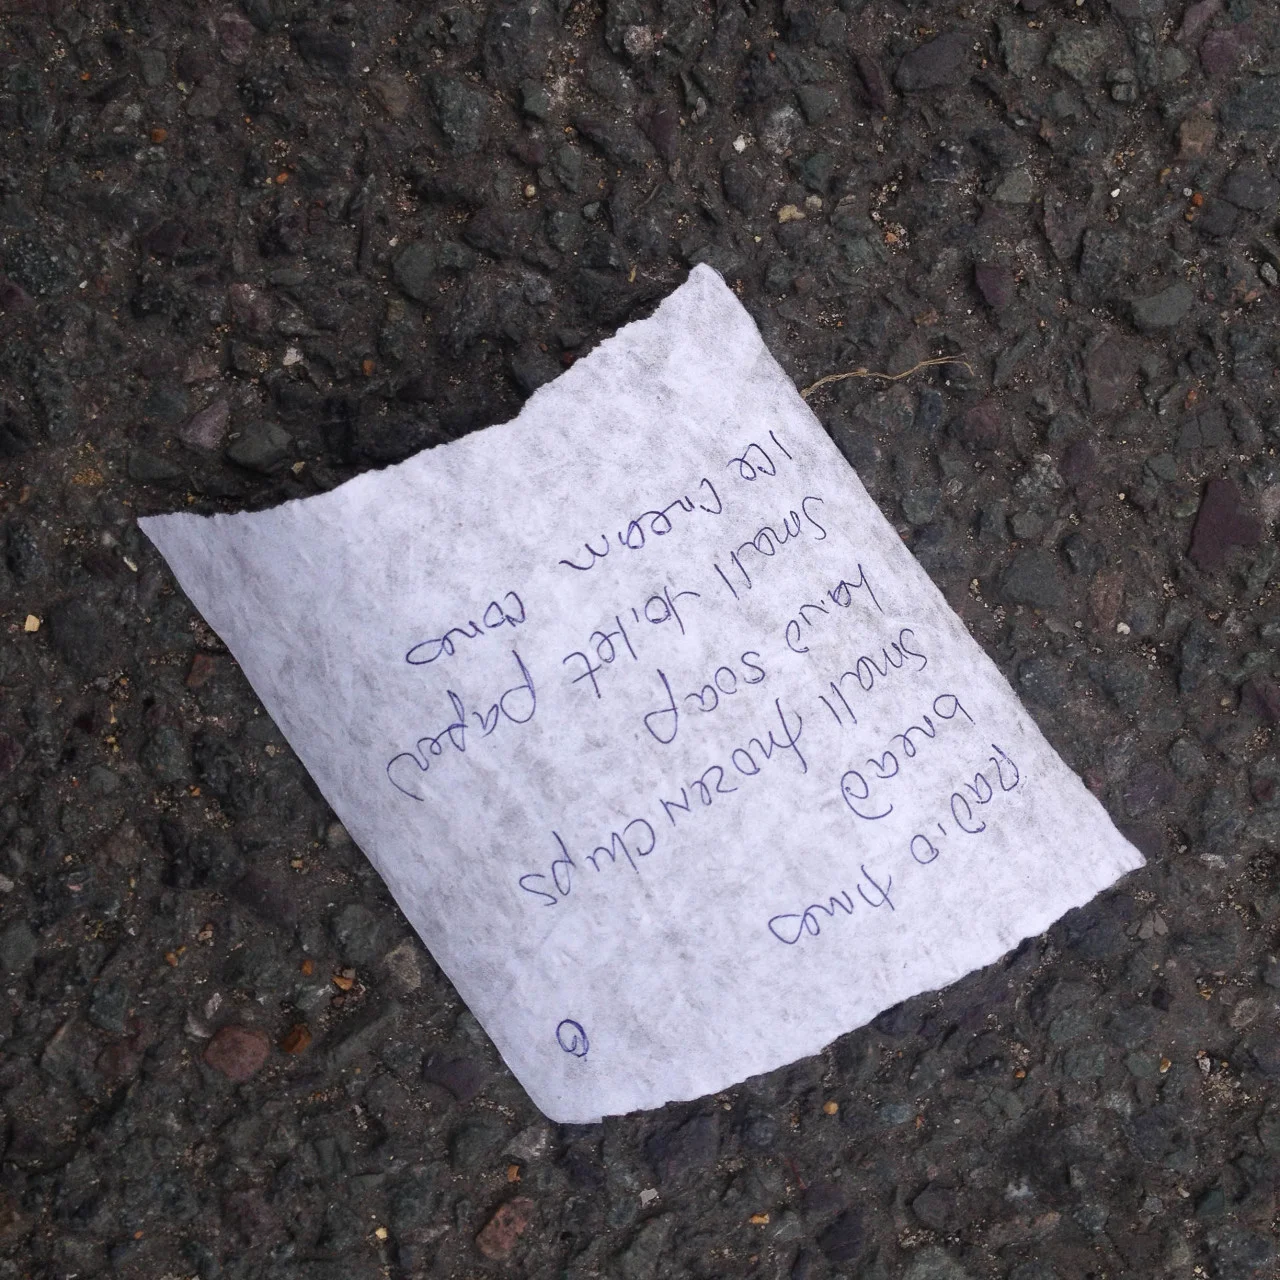 Radio times
bread
small frozen chips
hand soap
small toilet paper
ice cream cones